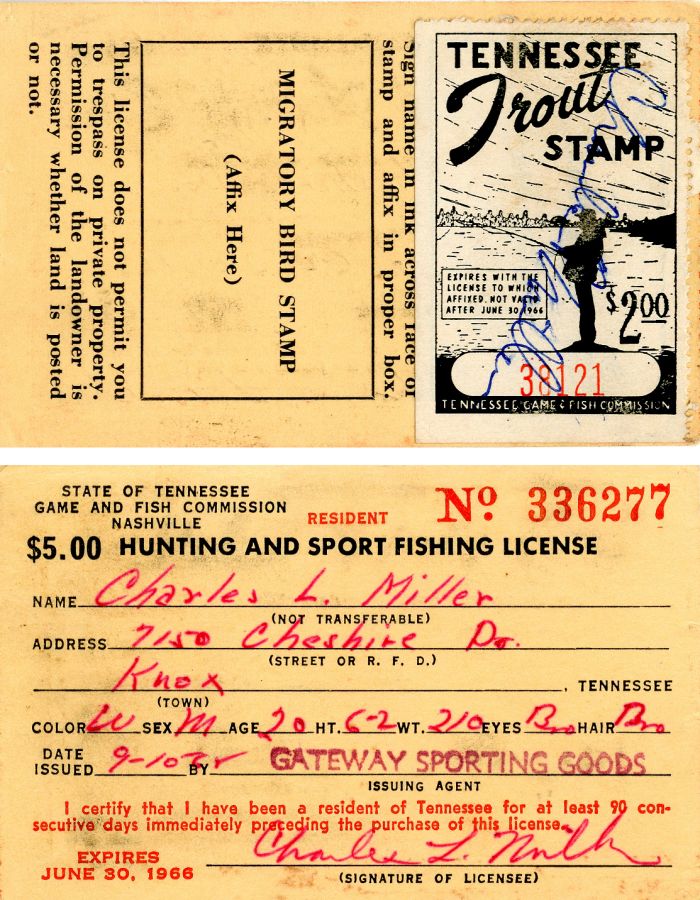 This license does not permit you
to trespass on private property.
Permission of the landowner is
necessary whether land is posted
or not.
MIGRATORY BIRD STAMP
(Affix Here)
Sign name in ink across face of
stamp and affix in proper box.
TENNESSEE
Trout
STAMP
EXPIRES WITH THE
LICENSE TO WHICH
AFFIXED. NOT VALID
AFTER JUNE 30, 1966
$2.00
38121
TENNESSEE GAME & FISH COMMISSION
Charles L. Miller
STATE OF TENNESSEE
GAME AND FISH COMMISSION
NASHVILLE
RESIDENT
No 336277
$5.00 HUNTING AND SPORT FISHING LICENSE
NAME Charles L. Miller
(NOT TRANSFERABLE)
ADDRESS 7150 Cheshire Dr.
(STREET OR R. F. D.)
Knox, TENNESSEE
(TOWN)
COLOR W SEX M AGE 20 HT. 6-2 WT. 210 EYES Bro HAIR Bro
DATE
ISSUED 9-10- BY GATEWAY SPORTING GOODS
ISSUING AGENT
I certify that I have been a resident of Tennessee for at least 90 con-
secutive days immediately preceding the purchase of this license.
EXPIRES
JUNE 30, 1966
Charles L. Miller
(SIGNATURE OF LICENSEE)